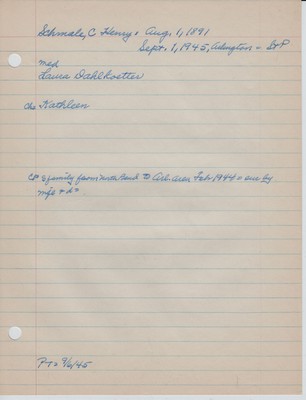 Schmale, C Henry: Aug. 1, 1891
Sept. 1, 1945, Arlington = D+P
med
Laura Dahlkoetter
ch: Kathleen
CP & family from North Bend to Arl. area Feb 1944 = sur by
wife + d =
PT = 9/6/45